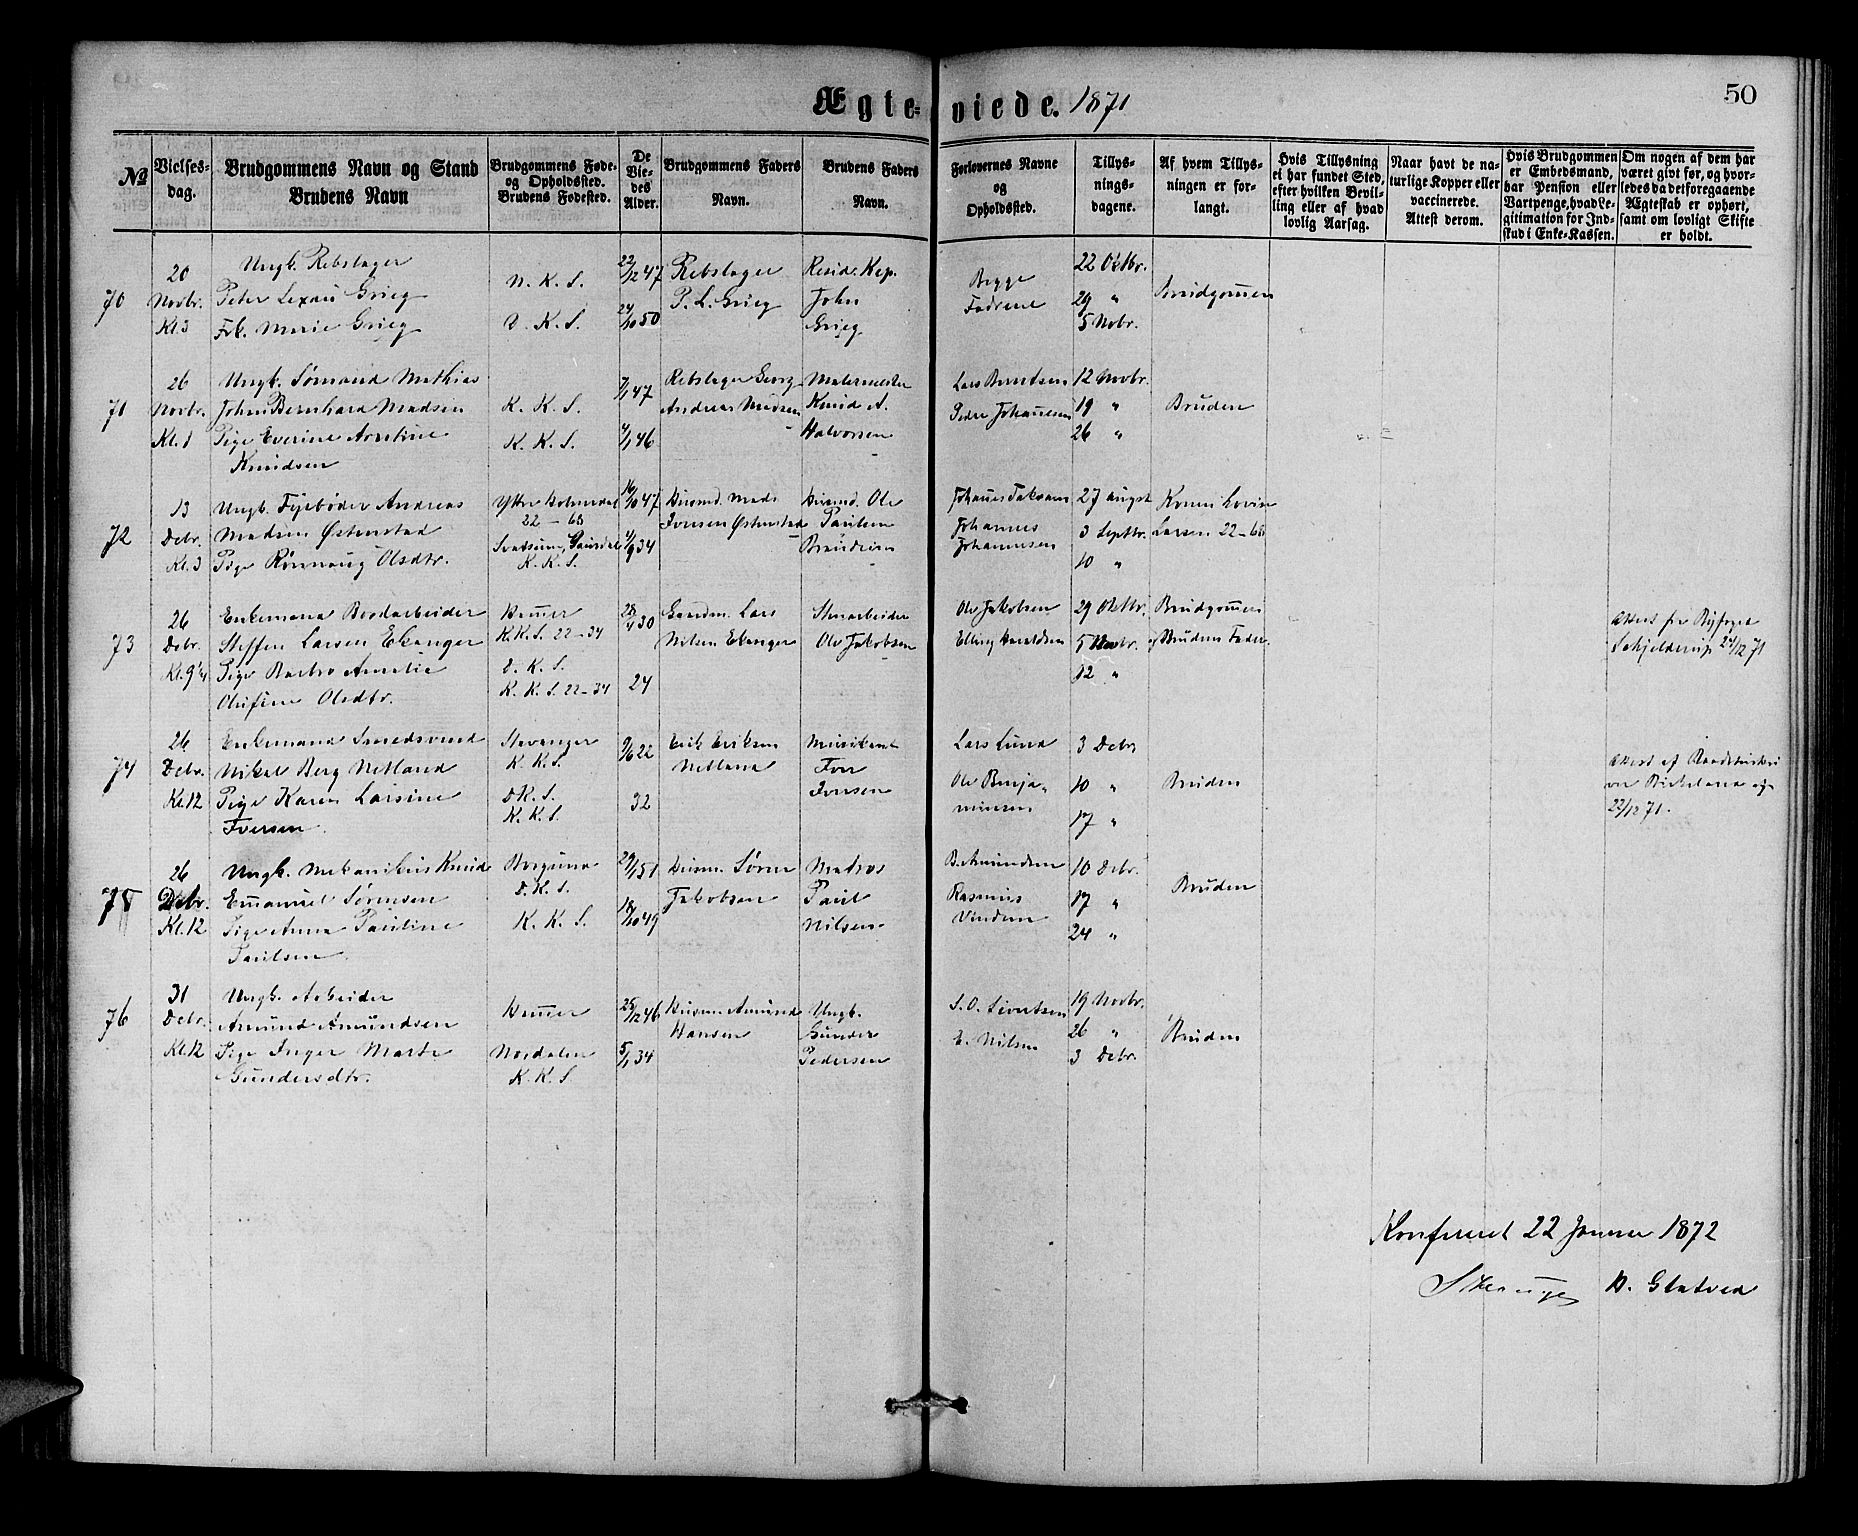 Ægte-viede. 1871
50
No
Vielses-dag.
Brudgommens Navn og Stand
Brudens Navn
Brudgommens Føde- og Opholdssted.
Brudens Fødested.
De Viedes Alder.
Brudgommens Faders Navn.
Brudens Faders Navn.
Forlovernes Navne og Opholdssted.
Tillysningsdagene.
Af hvem Tillysningen er forlangt.
Hvis Tillysning ei har fundet Sted, efter hvilken Bevilling eller af hvad lovlig Aarsag.
Naar havt de naturlige Kopper eller vaccinerede. Attest derom.
Hvis Brudgommen er Embedsmand, har Pension eller Vartpenge, hvad Legitimation for Indskud i Enke-Kassen.
Om nogen af dem har været givt før, og hvorledes da det foregaaende Ægteskab er ophørt, samt om lovligt Skifte er holdt.
70
20 Novbr. Kl. 3
Ungk. Rebslager
Peter Lexau Grieg
Frk. Marie Grieg
N. K. S.
D. K. S.
22/12 47
24/10 50
Rebslager
P. L. Grieg
Resid. Kap.
John
Grieg
Begge
Fædrene
22 Oktbr.
29 "
5 Novbr.
Brudgommen
71
26 Novbr. Kl. 1
Ungk. Sømand Mathias
Johan Bernhard Madsen
Pige Everine
Knudsen
K. K. S.
K. K. S.
7/1 47
4/1 46
Rebslager Georg
Andreas Madsen
Malermester
Knud A.
Halvorsen
Lars Berntsen
Peder Johannesen
12 Novbr.
19 "
26 "
Bruden
72
13 Debr. Kl. 3
Ungk. Andreas
Madsen Østenstad
Pige Rønnaug Olsdtr.
Ytre Holmedal
22 - 68
Svatsum, Gausdal
K. K. S.
16/10 47
1/9 34
Husmd. Mads
Iversen Østenstad
Husmd. Ole
Paulsen
Johannes
Johannesen
27 Augst
3 Septbr.
10 "
Larsen 22-68
73
26 Debr. Kl. 9 1/4
Enkemand Bordarbeider
Steffen Larsen Ekanger
Pige Barbro Amalie
Olufine Olsdtr.
Hammer
K. K. S. 22-34
D. K. S.
K. K. S. 22-34
28/4 30
24
Gaardm. Lars
Nilsen Ekanger
Stenarbeider
Ole Jakobsen
Ole Jakobsen
Elling Haraldsen
29 Oktbr.
5 Novbr.
12 "
Brudgommen
og Brudens Fader
Attest fra Byfoged
Schjelderup 24/12 71
74
26 Debr. Kl. 12
Enkemand Smedsvend
Mikal Berg Netland
Pige Karen Larsine
Iversen
Stavanger
K. K. S.
D K. S.
K. K. S.
9/6 22
32
Erik Eriksen
Netland
Musikant
Iver
Iversen
Lars Lund
Ole Benja-
minsen
3 Debr
10 "
17 "
Bruden
Attest af
22/12 71.
75
26 Debr. Kl. 12
Ungk. Mekanikus Knud
Emanuel Sørensen
Pige Anna Pauline
Paulsen
Borgund
D. K. S.
K. K. S.
29/1 51
18/10 49
Husm. Søren
Jakobsen
Matros
Paul
Nilsen
B. Amundsen
Rasmus
Vindenes
10 Debr.
17 "
24 "
Bruden
76
31 Debr. Kl. 12
Ungk. Arbeider
Amund Amundsen
Pige Inger Marte
Gundersdtr.
Hammer
Nordalen
K. K. S.
25/12 46
5/1 34
Husm. Amund
Hansen
Ungk.
Gunder
Pedersen
S. O. Sivertsen
E. Nilsen
19 Novbr.
26 "
3 Debr.
Bruden
Konfereret 22 Januar 1872